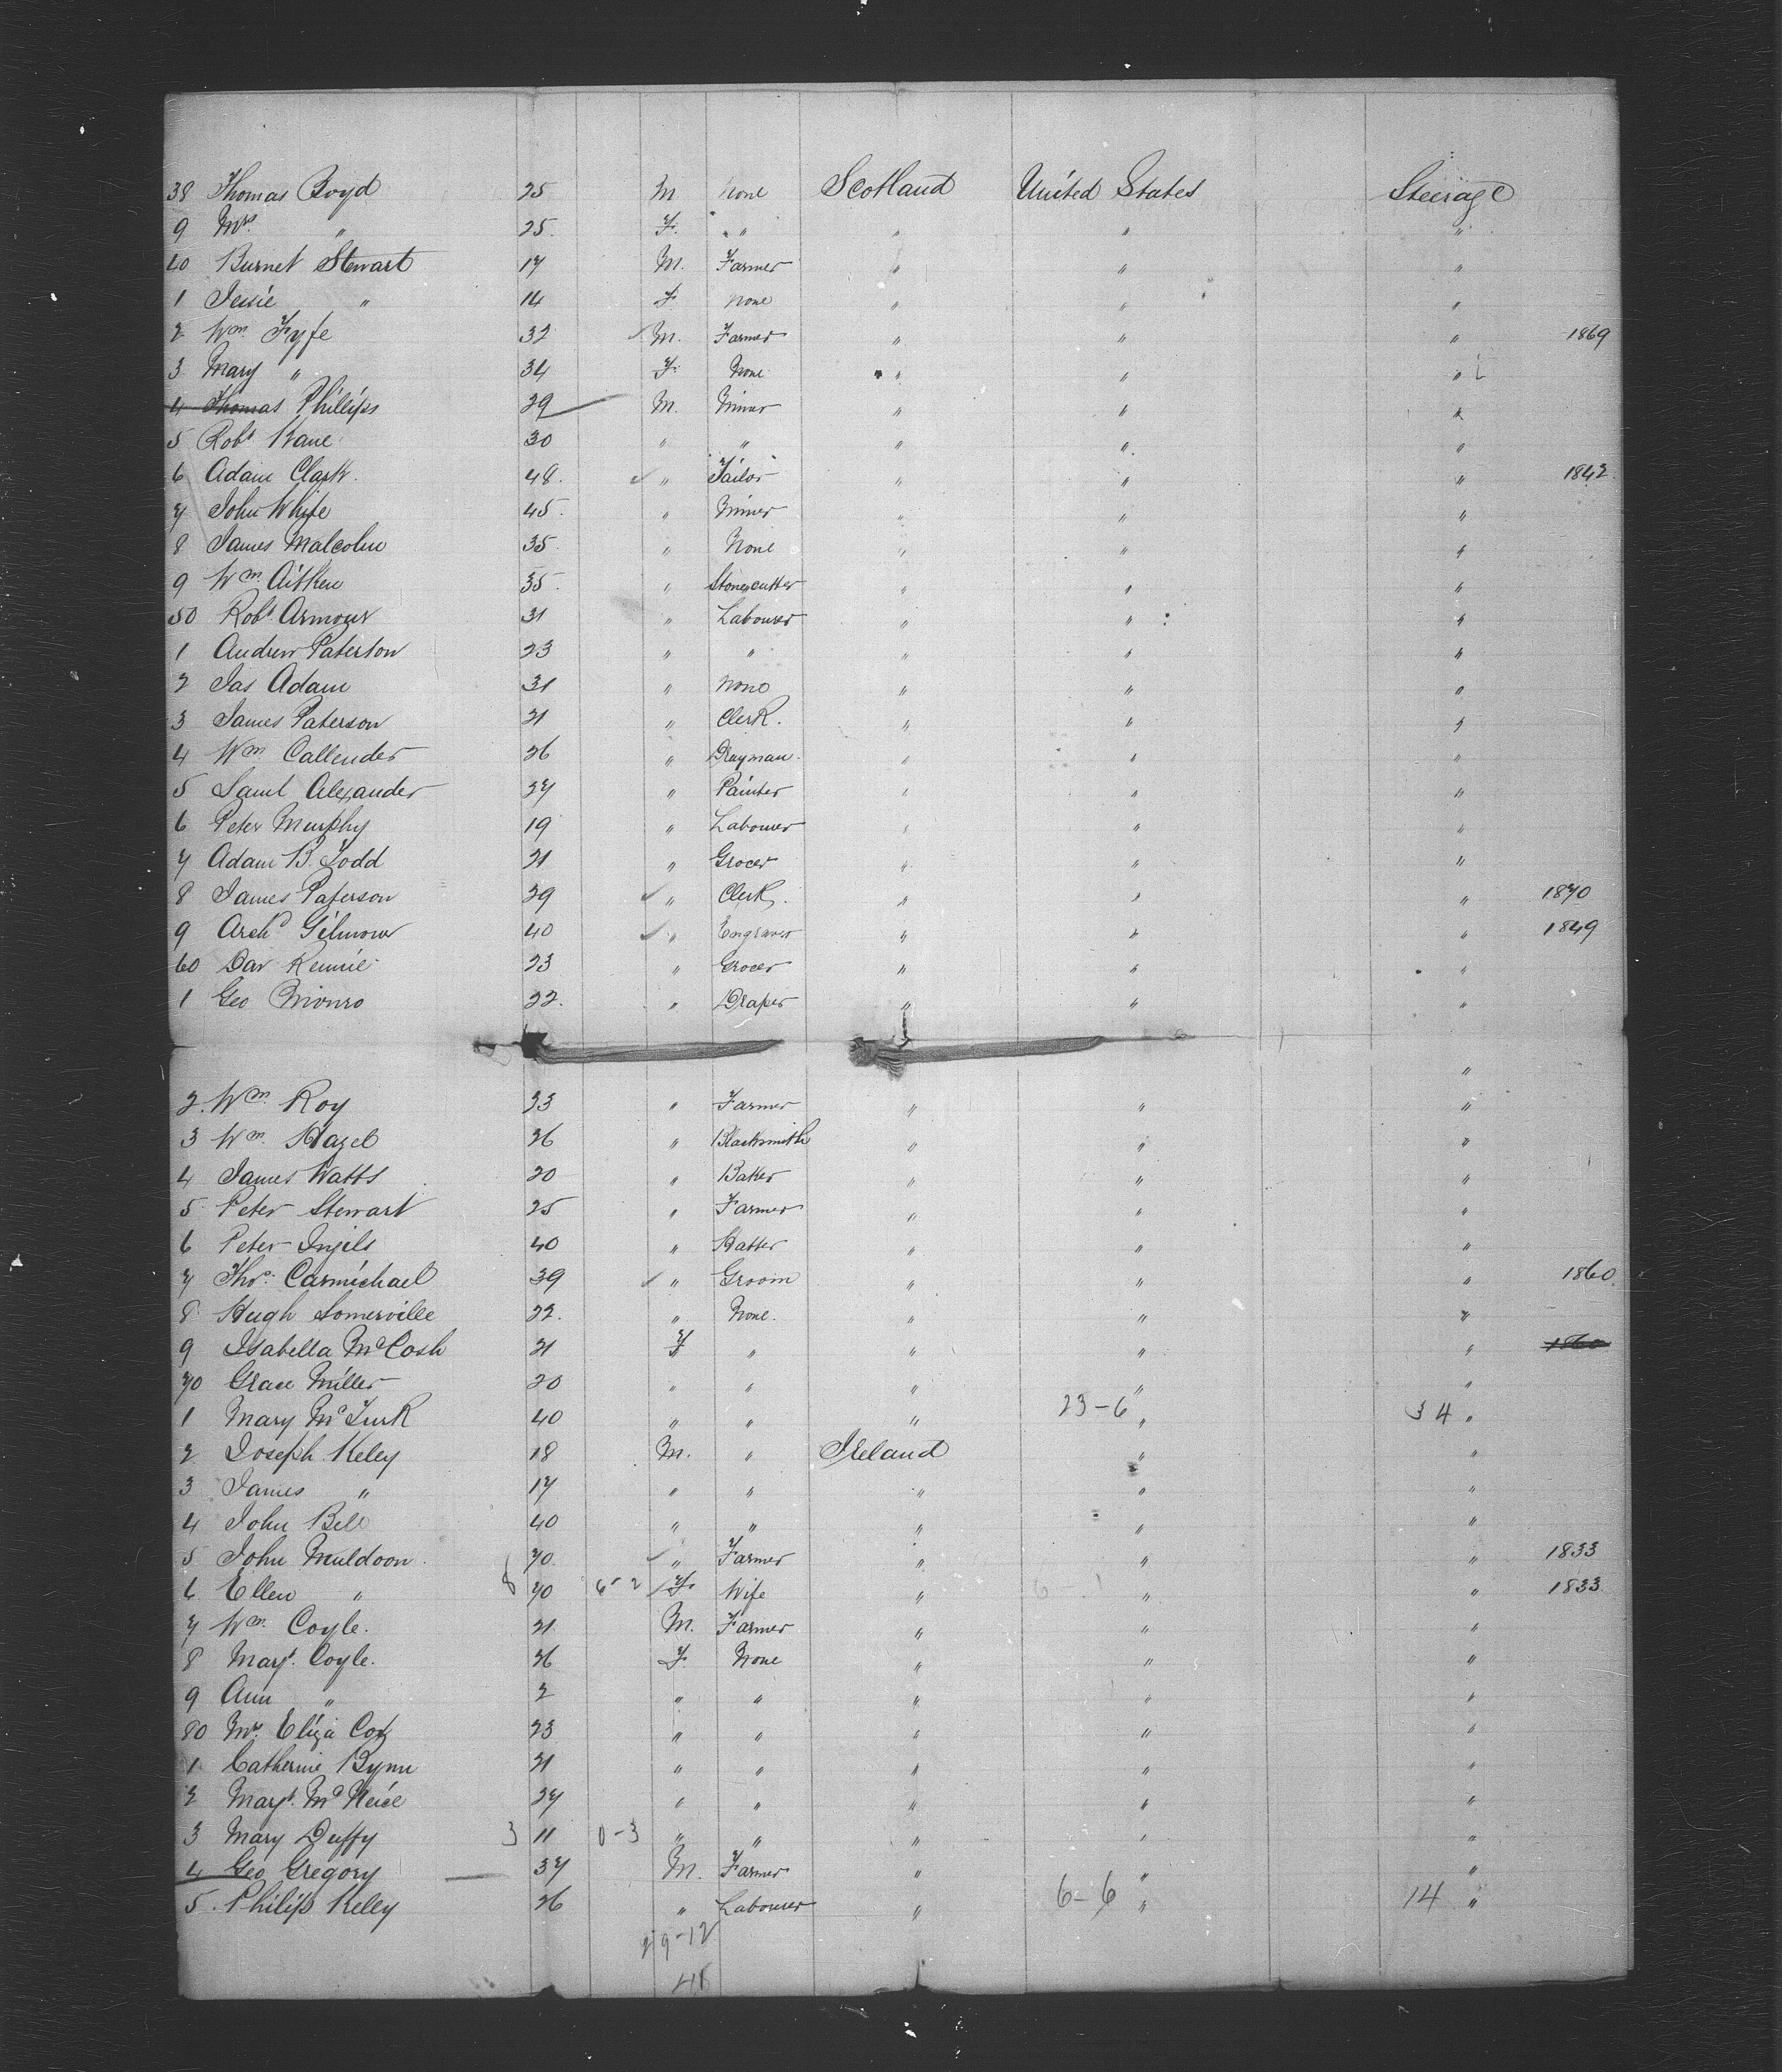 38 Thomas Boyd 25 M None Scotland United States Steerage
9 Mrs " 25 F. " " " "
40 Burnet Stewart 17 M. Farmer " " "
1 Jessie " 14 F None " " "
2 Wm Fyfe 32 M. Farmer " " " 1869
3 Mary " 34 F. None " " "
4 Thomas Phillips 29 M. Miner " " "
5 Robt Kane 30 " " " " "
6 Adam Clark 48. " Tailor " " " 1842
7 John White 45. " Miner " " "
8 James Malcolm 35 " None " " "
9 Wm Aitken 35 " Stonecutter " " "
50 Robt Armour 31 " Labourer " " "
1 Andrew Paterson 23 " " " " "
2 Jas Adam 31 " None " " "
3 James Paterson 21 " Clerk. " " "
4 Wm Callender 26 " Drayman " " "
5 Saml Alexander 27 " Painter " " "
6 Peter Murphy 19 " Labourer " " "
7 Adam B. Todd 21 " Grocer " " "
8 James Paterson 29 " Clerk. " " " 1870
9 Archd Gilmour 40 " Engraver " " " 1849
60 Dav Rennie 23 " Grocer " " "
1 Geo Monro 22. " Draper " " "
"
2. Wm Roy 33 " Farmer " " "
3 Wm Hazel 26 " Blacksmith " " "
4 James Watts 20 " Baker " " "
5 Peter Stewart 25 " Farmer " " "
6 Peter Ingils 40 " Hatter " " "
7 Thos. Carmichael 39 " Groom " " " 1860
8 Hugh Somerville 22. " None. " " "
9 Isabella McCosh 21 F " " " " 1860
70 Grace Miller 20 " " " " "
1 Mary McTurk 40 " " " 23-6 " 34 "
2 Joseph Keley 18 M. " Ireland " "
3 James " 17 " " " " "
4 John Bell 40 " " " " "
5 John Muldoon 70 " Farmer " " " 1833
6 Ellen " 8 70 6-2 F Wife " " " 1833
7 Wm Coyle. 21 M. Farmer " " "
8 Margt. Coyle. 26 F. None " " "
9 Ann " 2 " " " " "
80 Mrs Eliza Cox 23 " " " " "
1 Catherine Bynn 21 " " " " "
2 Margt. McNeice 27 " " " " "
3 Mary Duffy 3 11 0-3 " " " " "
4 Geo Gregory 37 M. Farmer " " "
5. Philip Kelly 26 " Labourer " 6-6 " 14 "
29-12
41